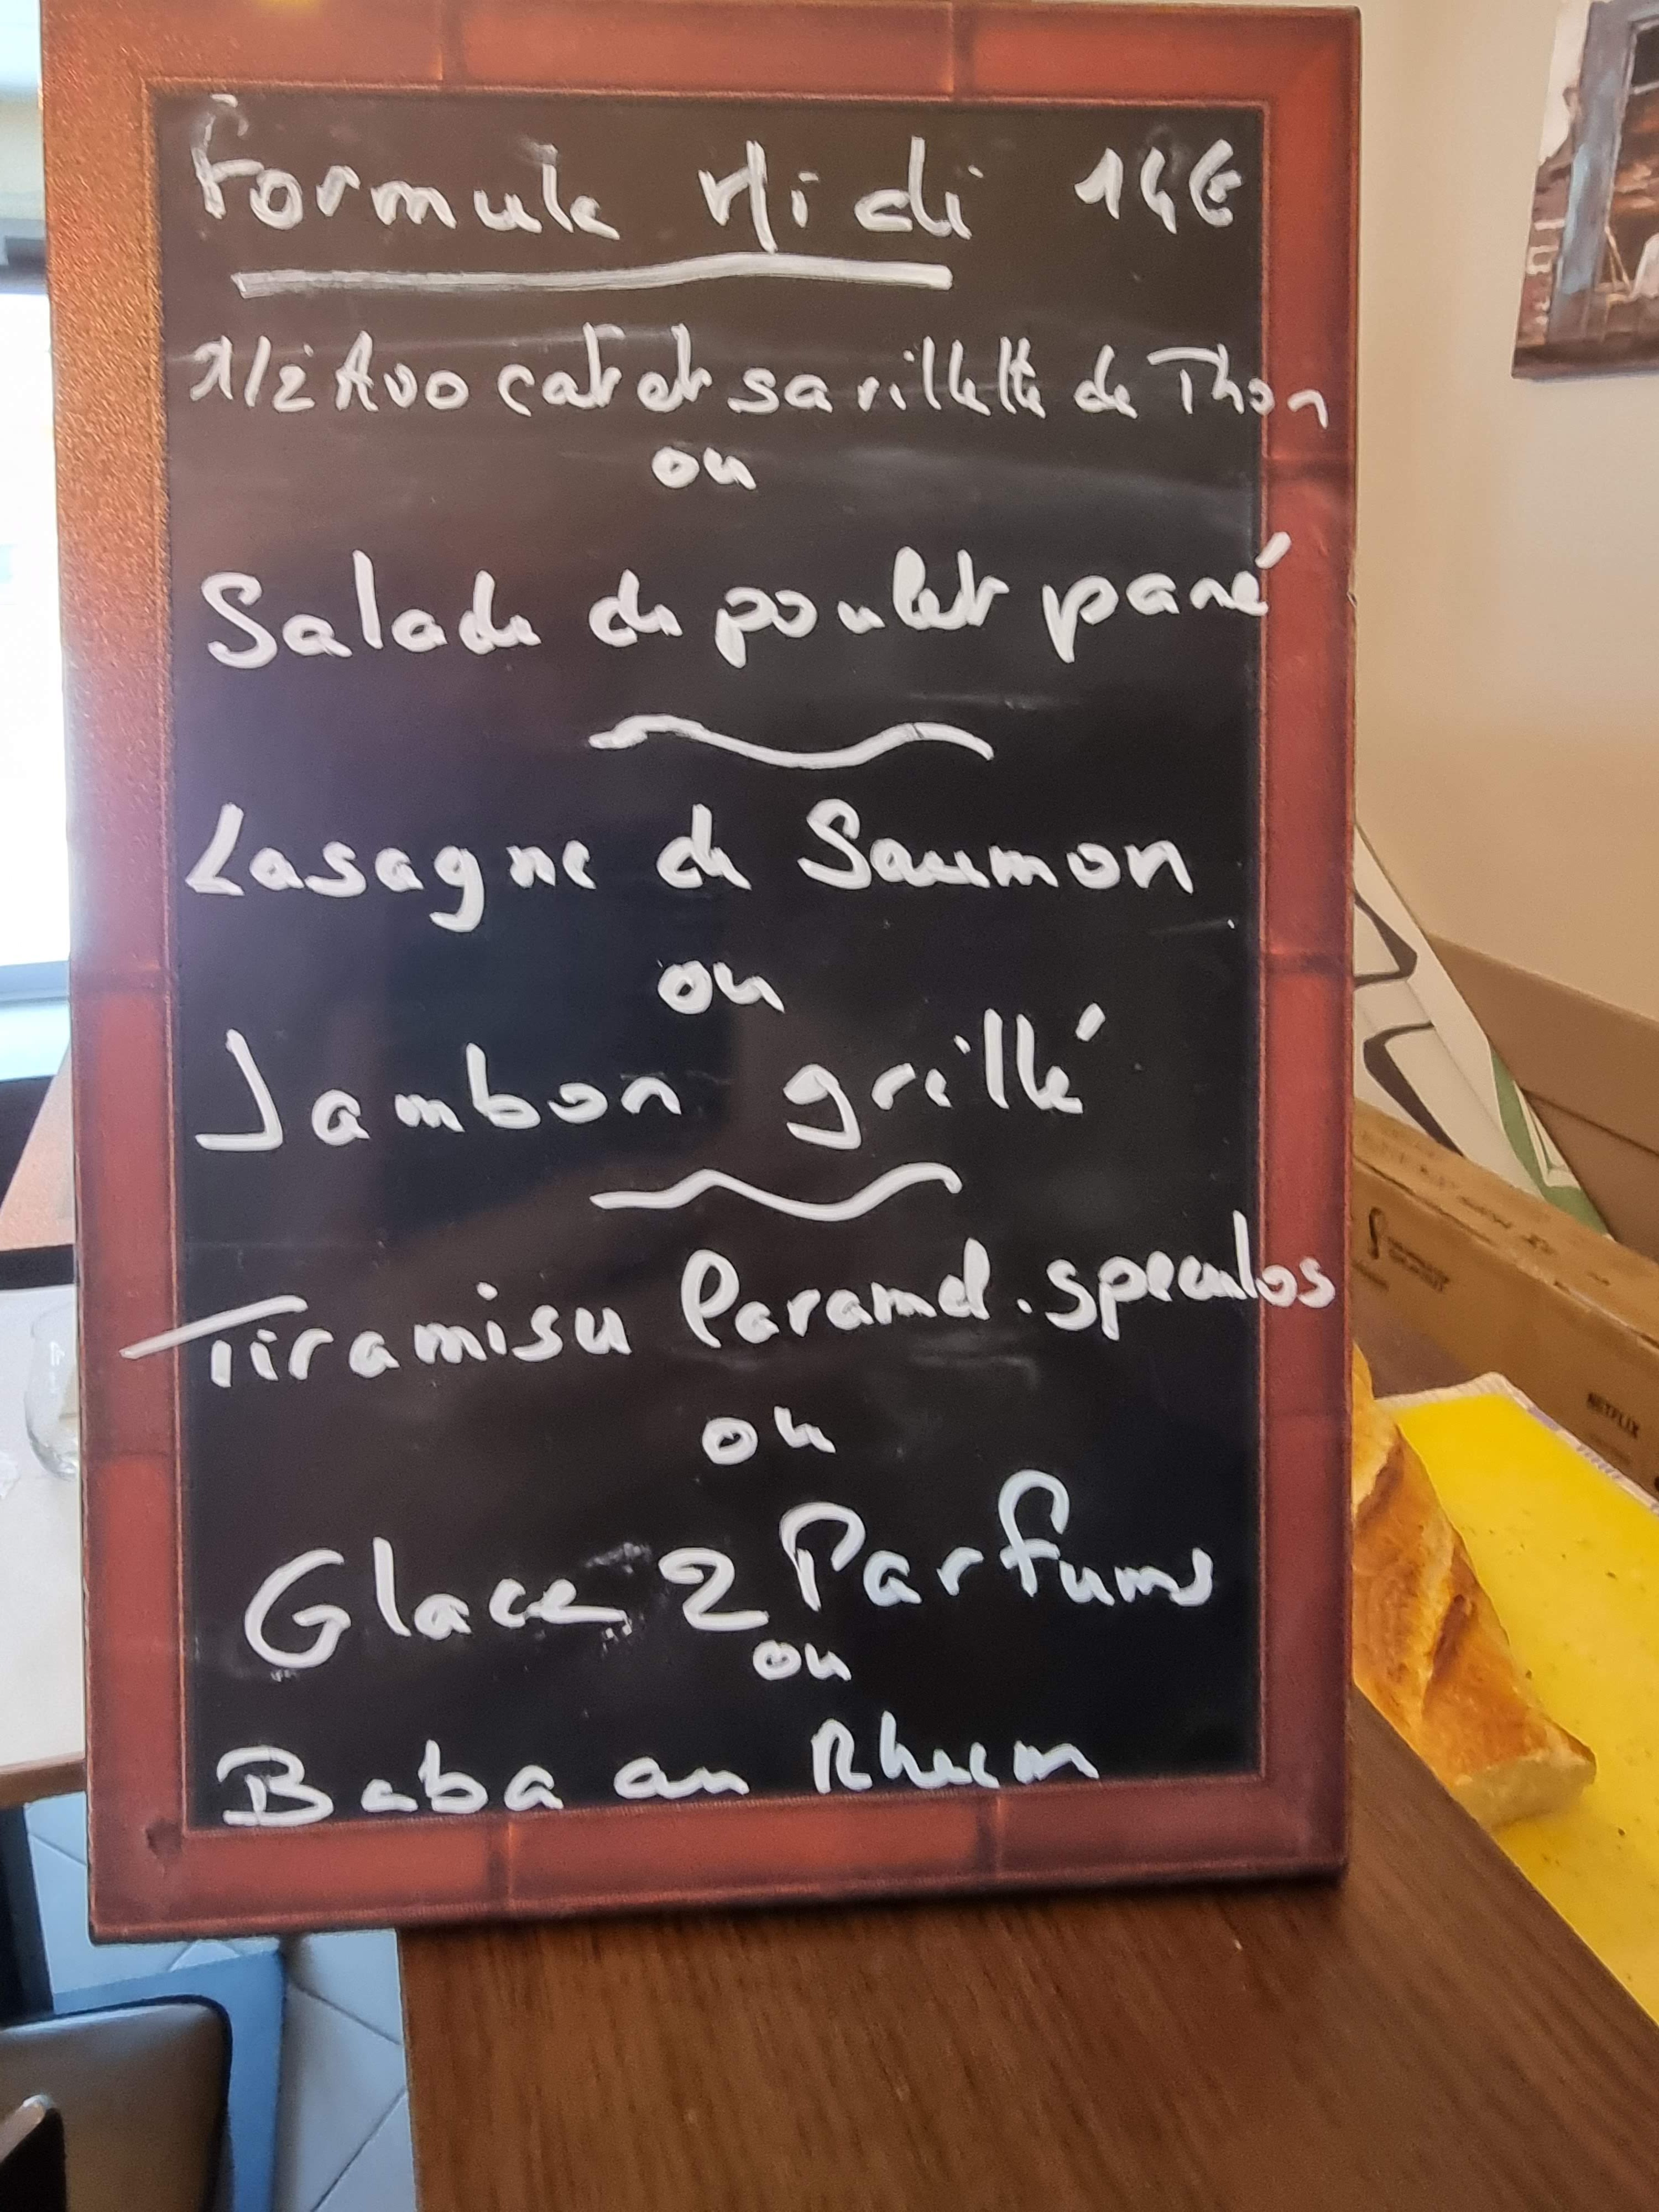 Formule Midi 14€
1/2 Avocat et sa rillette de Thon
ou
Salade de poulet pané
Lasagne de Saumon
ou
Jambon grillé
Tiramisu Caramel. speculos
ou
Glace 2 Parfums
ou
Baba au Rhum
NETFLIX